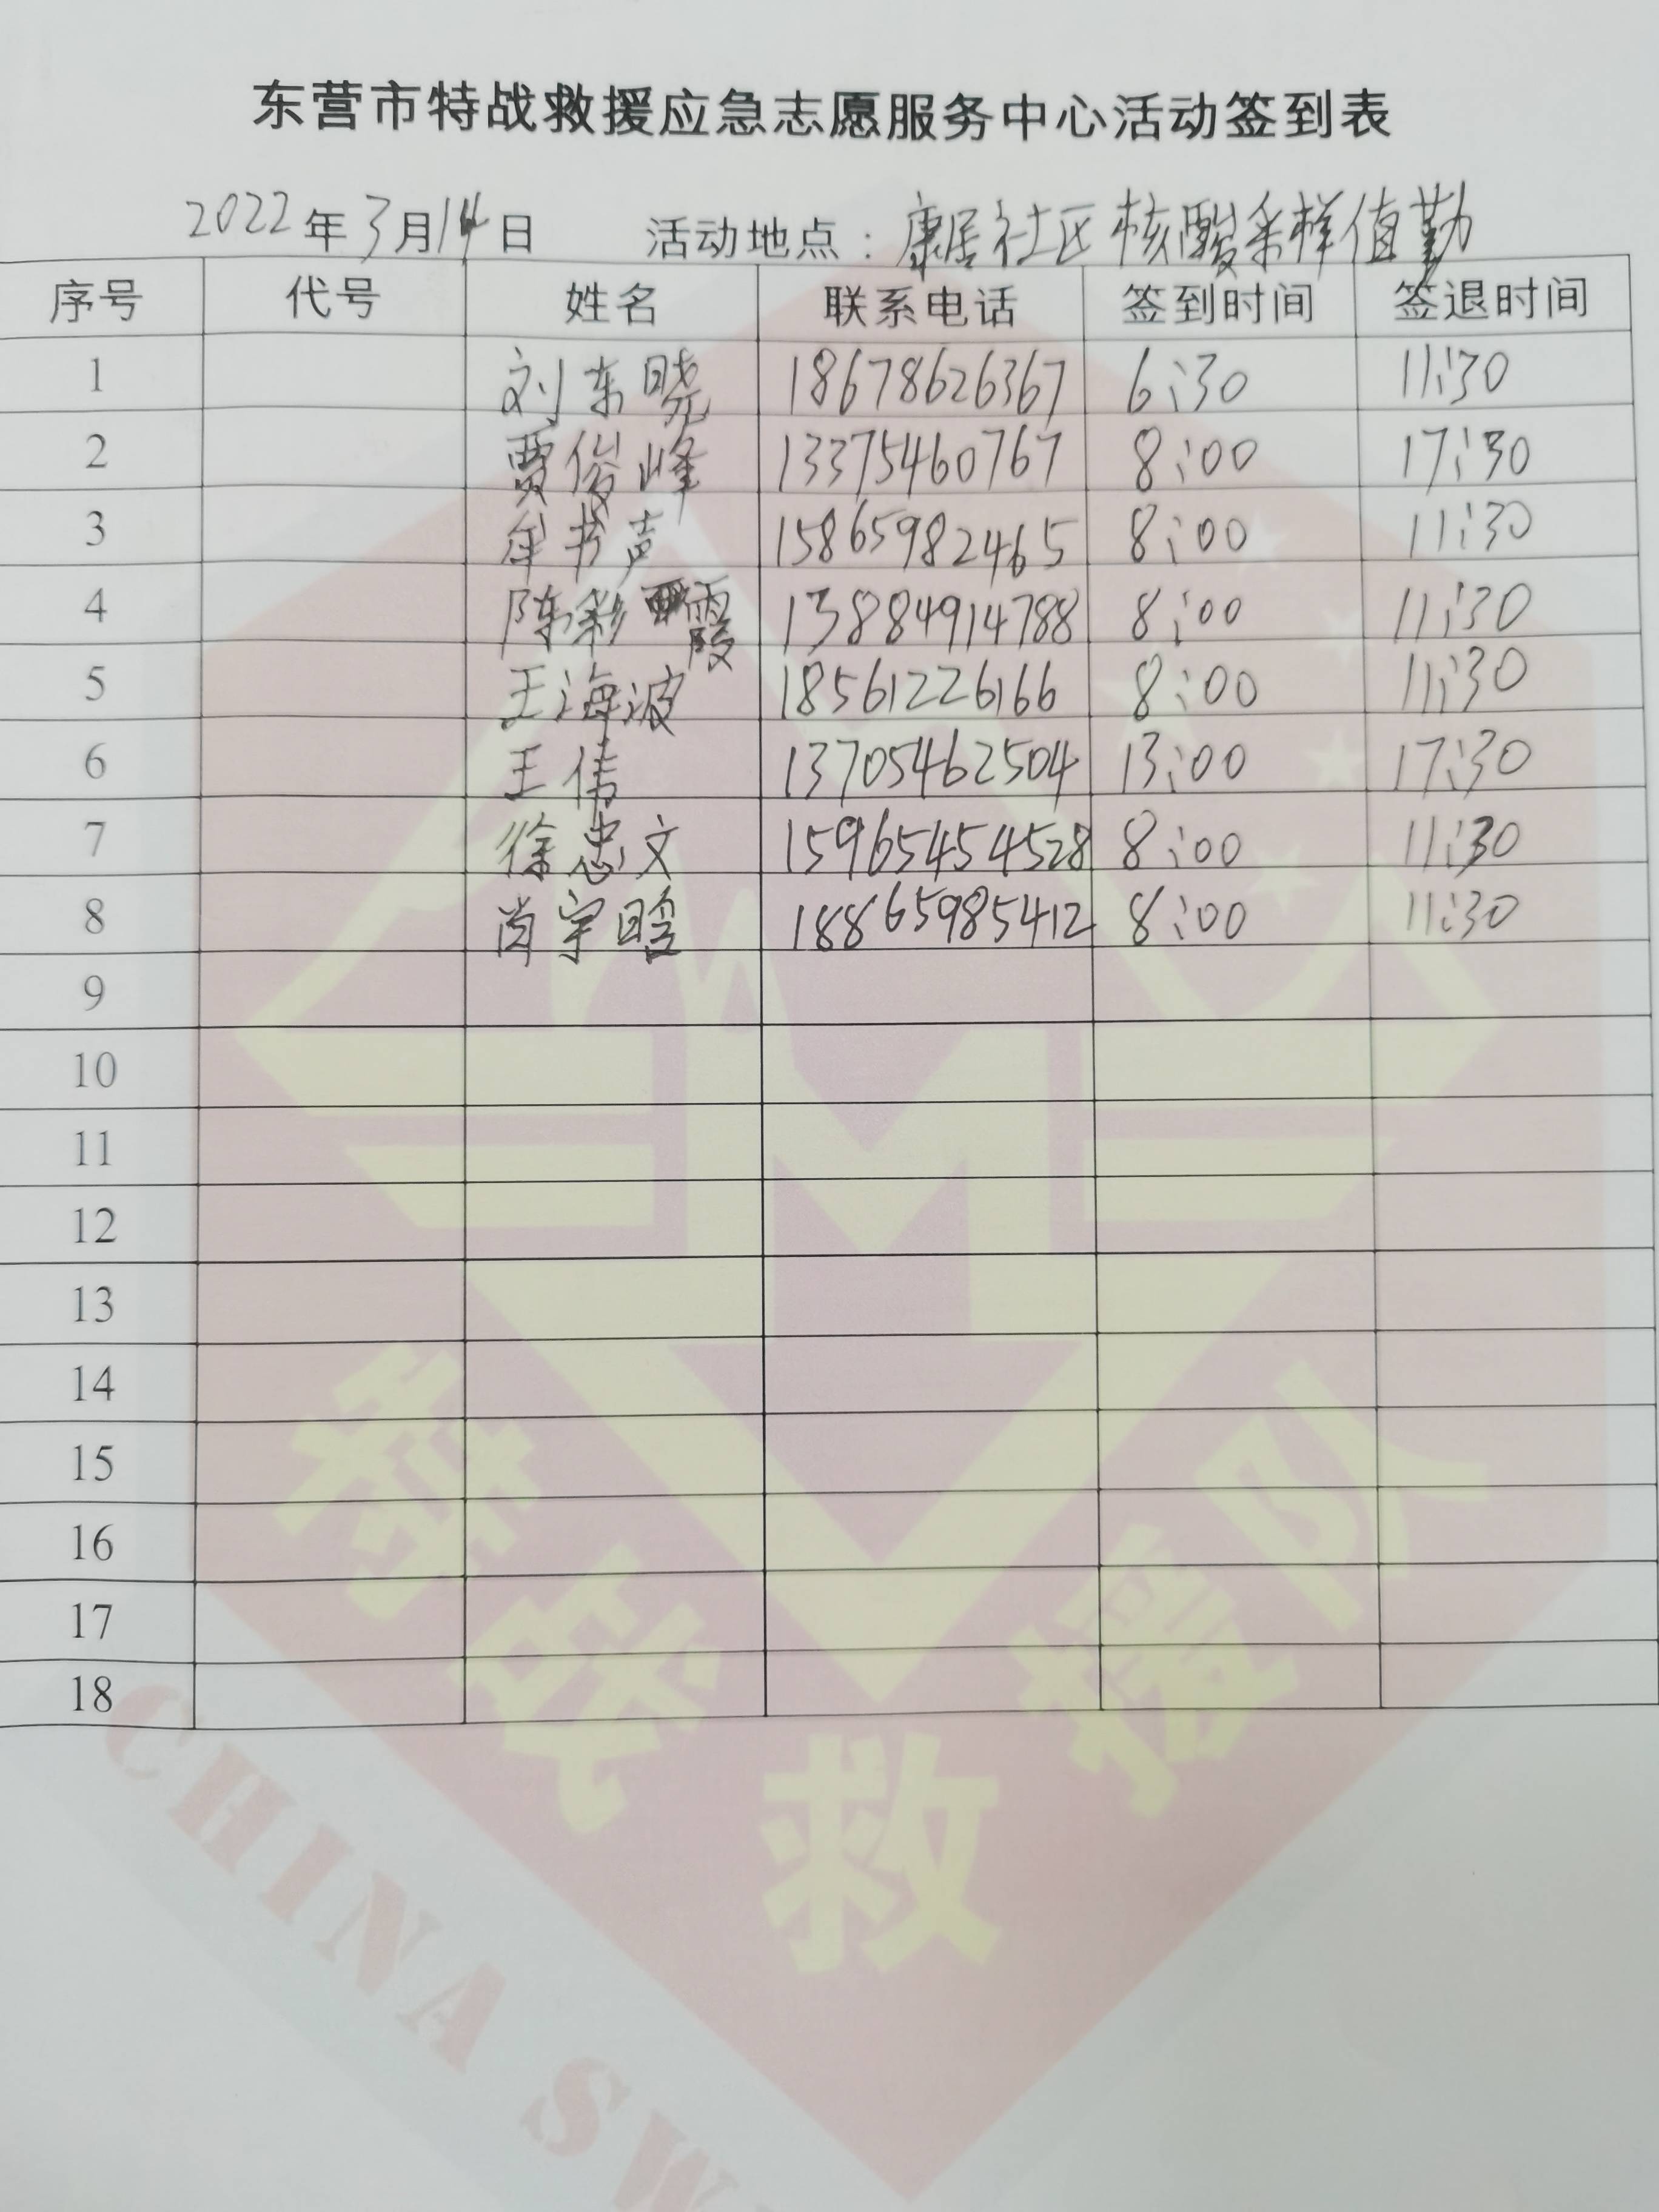 东营市特战救援应急志愿服务中心活动签到表
2022年3月14日 活动地点：康居社区核酸采样值勤
序号 代号 姓名 联系电话 签到时间 签退时间
1 刘东晓 18678626367 6:30 11:30
2 贾俊峰 13375460767 8:00 17:30
3 书声 15865982465 8:00 11:30
4 陈彩霞 13884914788 8:00 11:30
5 王海波 18561226166 8:00 11:30
6 王伟 13705462504 13:00 17:30
7 徐忠文 15965454528 8:00 11:30
8 肖宇晗 18865985412 8:00 11:30
9
10
11
12
13
14
15
16
17
18
特战救援队
CHINA SW